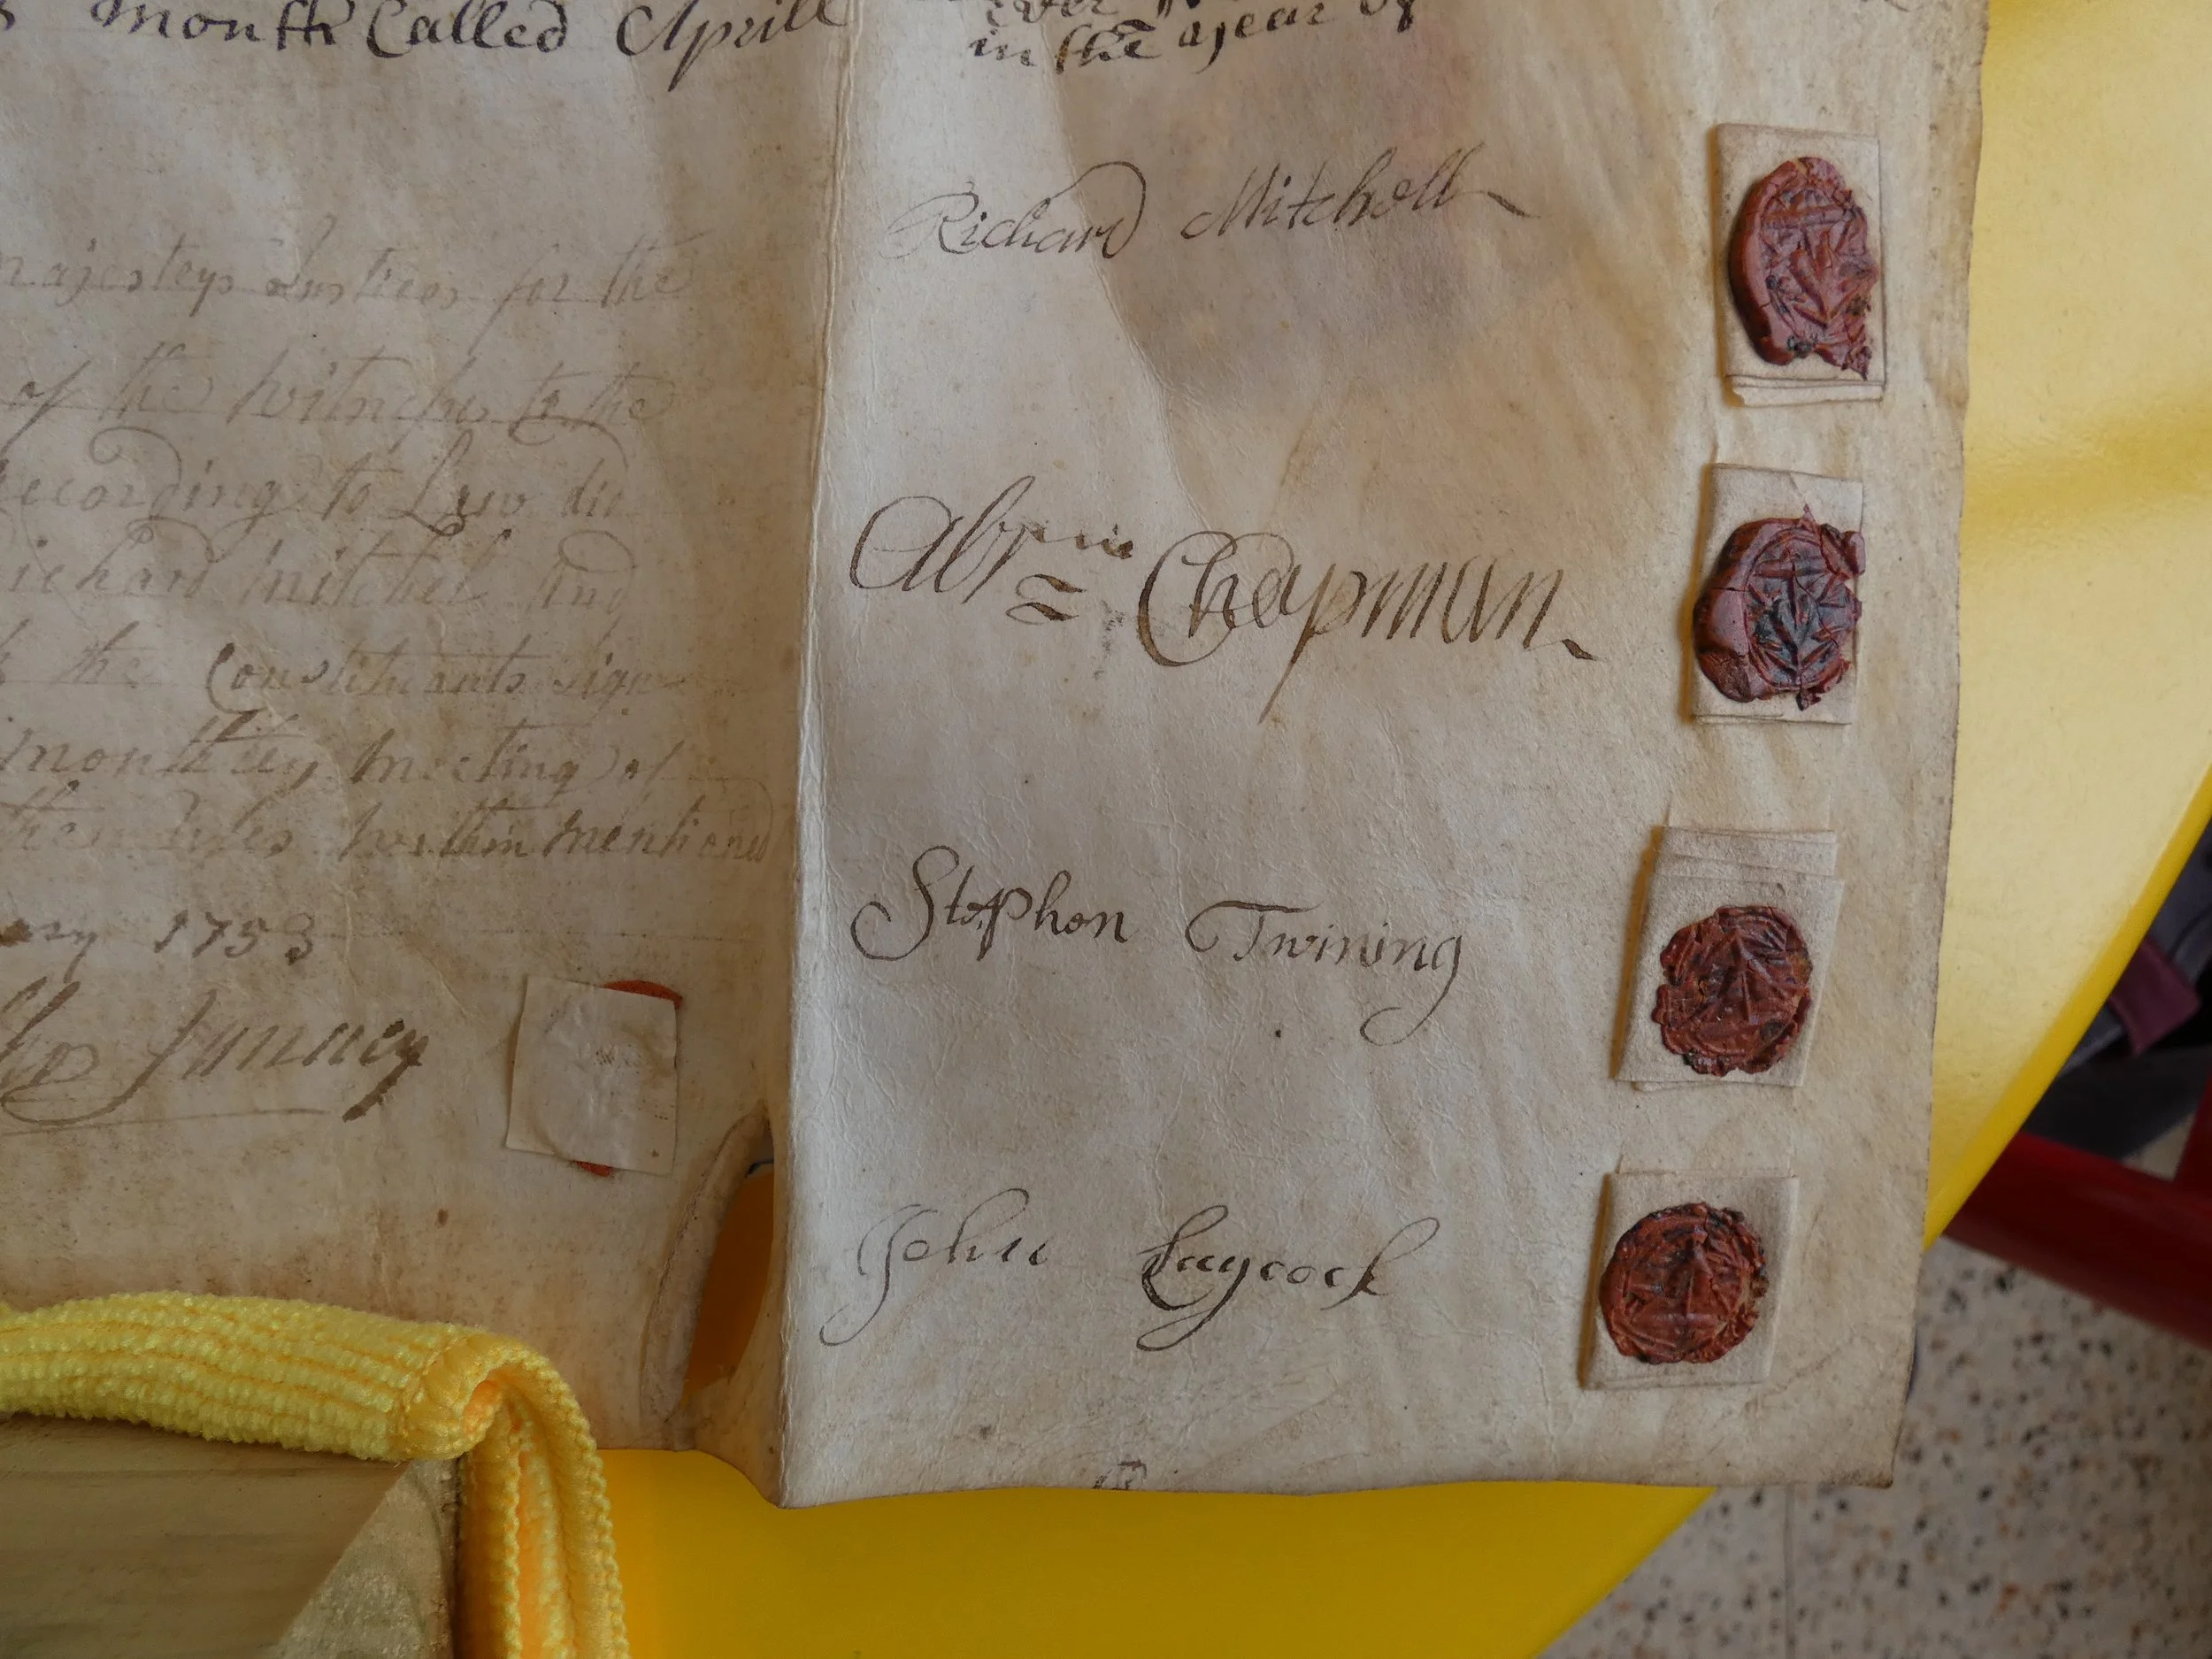 Month Called Aprill
in the year of
Majesteys Justices for the
of the Witnesses to the
According to Law did
Richard Mitchel And
the Constituants sign
Monthley Meeting of
within Mentioned
1753
Janney
Richard Mitchell
Abrm Chapman
Stephen Twining
John Laycock